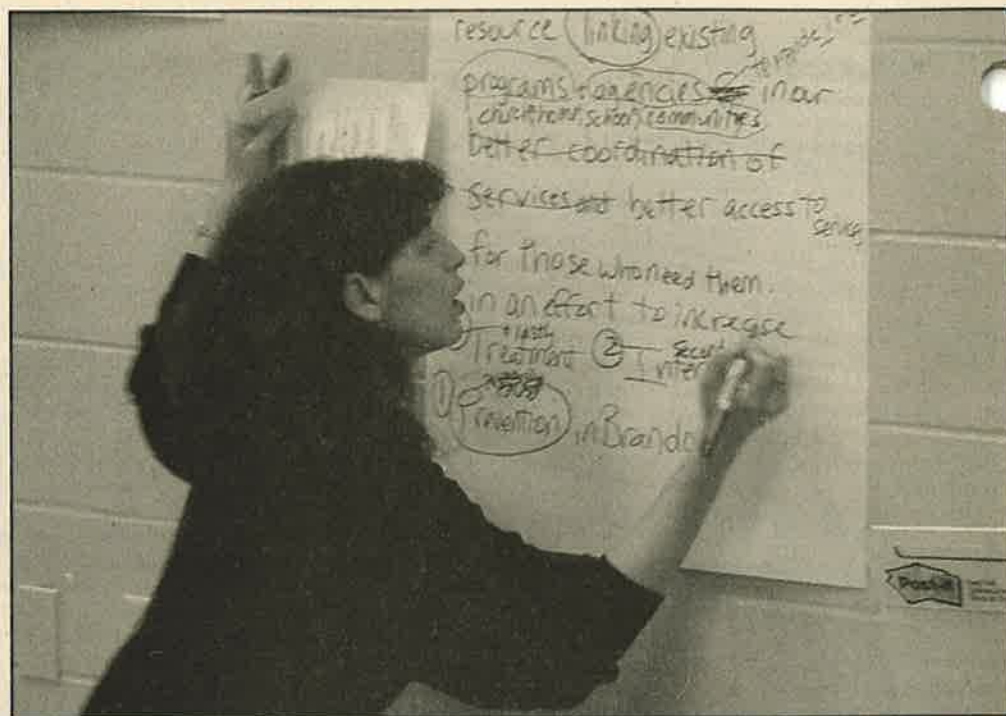 resource linking existing
programs + agencies in our
church, home, school, communities
better coordination of
services and better access to
services
for those who need them.
in an effort to increase
+ lastly
Treatment ② second
Inter
① Prvention in Brando
Post-it